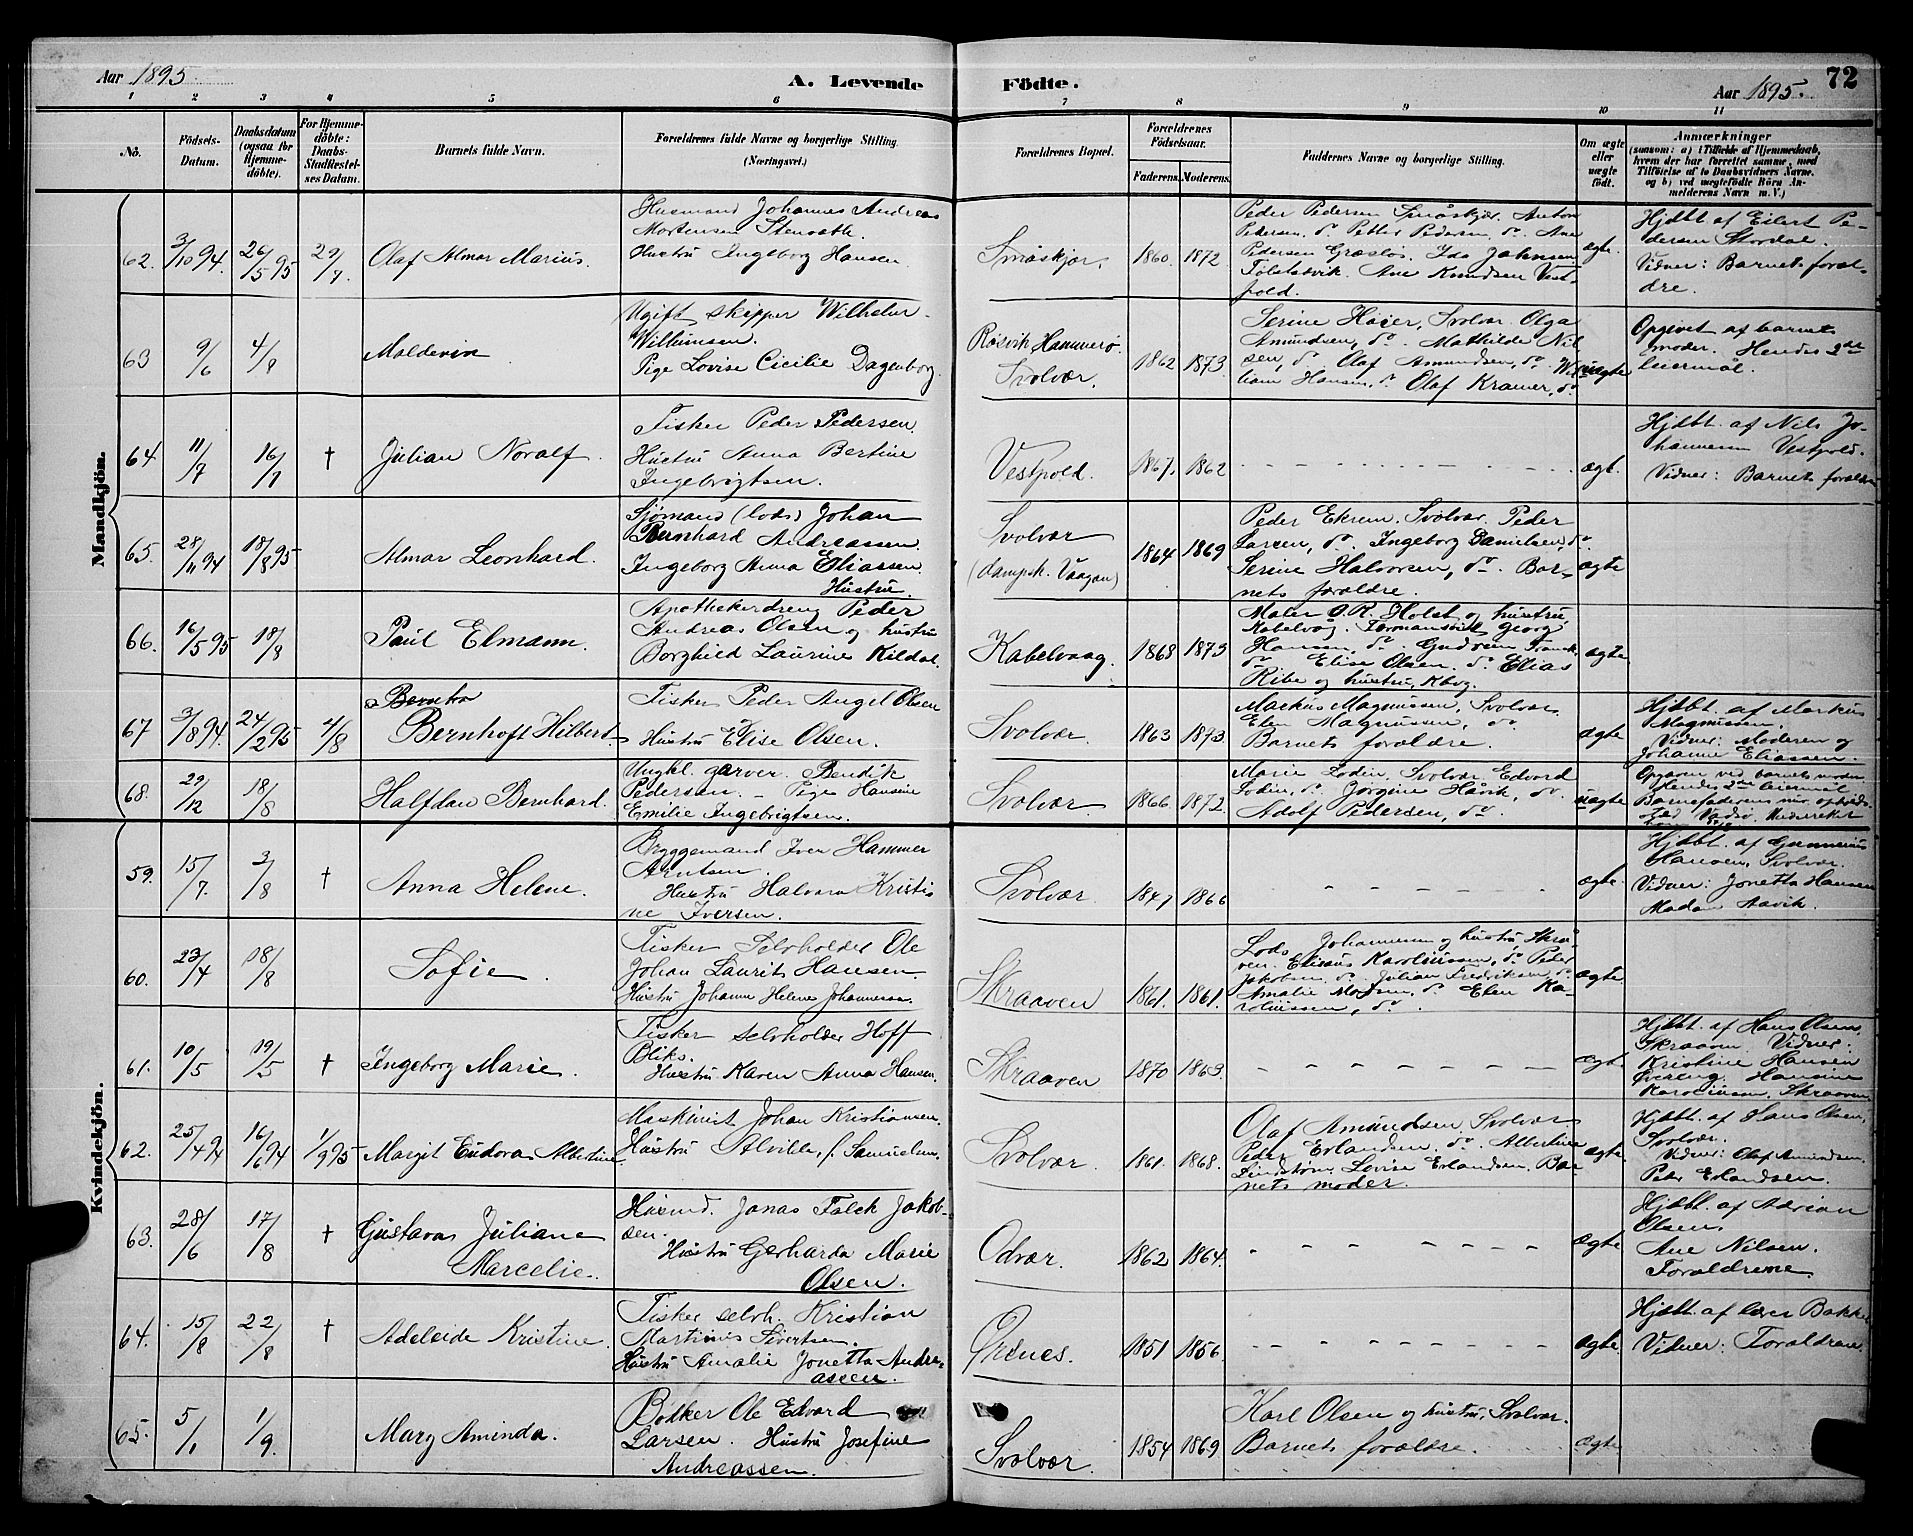 Aar 1895.
A. Levende
Födte.
Aar 1895.
72
1 2 3 4 5 6 7 8 9 10 11
No.
Födsels-Datum.
Daabsdatum (ogsaa for Hjemmedöbte).
For Hjemmedöbte: Daabs-Stadfæstelses Datum.
Barnets fulde Navn.
Forældrenes fulde Navne og borgerlige Stilling (Næringsvei.)
Forældrenes Bopæl.
Forældrenes Födselsaar.
Faderens. Moderens.
Faddernes Navne og borgerlige Stilling.
Om ægte eller uægte födt.
Anmærkninger
(saasom: a) i Tilfælde af Hjemmedaab, hvem der har forrettet samme, med Tilföielse af to Daabsvidners Navne, og b) ved uægtefödte Börn Anmelderens Navn m. V.)
Mandkjön.
62. 3/10 94. 26/5 95 29/7. Olaf Almar Marius.
Husmand Johannes Andreas
Mortensen
Hustru Ingeborg Hansen
Småskjær. 1860. 1872
Peder Pedersen Småskjær. Anton
Pedersen, do Petter Pedersen, do. Ane
Pedersen Græslös, Ida Johnsen
Ane Knudsen Vest-
pold.
ægte.
Hjdbt af Eilert Pe-
dersen Stordal.
Vidner: Barnets foræl-
dre.
63 9/6 4/8 Malderin
Ugift skipper Wilhelm
Pige Lovise Cicilie Dagenborg
Rösvik Hammerö
Svolvær. 1862 1873.
Serine Höier, Svolvær Olga
Amundsen, do. Mathilde Nil
sen, do Olaf Amundsen, do. Wil
liam Hansen, do Olaf Kramer, do
uægte
Opgivet af barnets
moder. Hendes 2det
leiermål.
64 11/7 16/7 † Julian Noralf.
Fisker Peder Pedersen.
Hustru Anna Bertine
Ingebrigtsen.
Vestpold. 1867. 1862
ægt.
Hjdbt. af Nils Jo-
hannesen Vestpold.
Vidner: Barnets foreldre
65. 28/11 94 18/8 95 Almar Leonhard.
Sjömand (lods) Johan
Bernhard Andreassen.
Ingeborg Anna Eliassen.
Hustru.
Svolvær
(dampsk. Vaagan) 1864 1869
Peder Ekrem, Svolvær. Peder
Larsen, do. Ingeborg Danielsen, do.
Serine Halvorsen, do. Bar-
nets forældre.
ægte
66. 16/5 95 18/8 Paul Elmann.
Apothekerdreng Peder
Andreas Olsen og hustru
Borghild Laurine Kildal.
Kabelvaag. 1868 1873
Maler O. R. Holst og hustru
Kabelvåg. Georg
Hansen, do. Gudrun
do Elise Olsen, do Elias
Ribe og hustru, Kbvg.
ægte
67 3/8 94. 24/2 95 4/8 Bernhoft Hilbert
Fisker Peder Angel Olsen
Hustru Elise Olsen.
Svolvær 1863 1873.
Markus Magnussen, Svolvær
Elen Magnussen, do.
Barnets forældre.
ægte
Hjdbt. af Markus
Magnussen.
Vidner: Moderen og
Johanne Eliassen.
68. 29/12 18/8 Halfdan Bernhard.
Ungkl. garver. Bendik
Pedersen. – Pige Hansine
Emilie Ingebrigtsen.
Svolvær 1866 1872.
Marie Lodin, Svolvær Edvard
Lodin, do. Jörgine Håvik, do.
Adolf Pedersen, do
uægte
Opgaven ved barnets moder
Hendes 2det leiermål
Barnefaderens
sted Vadsö.
Kvindekjön.
59. 15/7. 3/8 † Anna Helene.
Bryggemand Iver Hammer
Arntsen.
Hustru Halvara Kristi
ne Iversen.
Svolvær. 1847 1866
ægte.
Hjdbt. af
Hansen, Svolvær.
Vidner: Jonetta Hansen
Madam Aavik.
60. 23/4 18/8 Sofie.
Fisker Selvholder Ole
Johan Laurits Hansen.
Hustru Johanne Helene Johannessen.
Skraaven 1861. 1861.
Lods Johannesen og hustru, Skra-
ven. Elisæus Karoliussen, do Peder
Jakobsen do. Julian Fredriksen do.
Amalie Madsen, do. Elen Ka-
roliussen, do.
ægte
61. 10/5 19/5 † Ingeborg Marie.
Fisker selvholder Hoff
Bliks.
Hustru Karen Anna Hansen.
Skraaven 1870 1863.
ægte
Hjdbt. af Hans Olsen.
Skraaven. Vidner:
Kristine Hansen
Övereng. Hansine
Karoliussen, Skraaven
62. 25/4 94 16/6 94 1/9 95 Margit Eudora Albertine
Maskinist Johan Kristiansen.
Hustru Alvilde, f. Samuelsen.
Svolvær. 1861. 1868.
Olaf Amundsen. Svolvær
Peder Erlandsen. do. Albertine
Lindström, Lovise Erlandsen. Bar-
nets moder.
ægte.
Hjdbt. af Hans Olsen,
Svolvær.
Vidner: Olaf Amundsen.
Peter Erlandsen.
63. 28/6 17/8 † Gustava Juliane
Marcelie.
Husmd. Jonas Falck Jakob-
sen.
Hustru Gerharda Marie
Olsen.
Odvær. 1862 1864.
ægte
Hjdbt. af Adrian
Olsen.
Ane Nilsen.
Forældrene.
64. 15/8 22/8 † Adeleide Kristine.
Fisker selvh. Kristian
Martinus Sivertsen.
Hustru Amalie Jonetta Andre-
assen.
Örenes. 1851 1856.
ægte.
Hjdbt. af lærer Bakke
Vidner: Forældrene
65. 5/1 1/9. Mary Aminda.
Bödker Ole Edvard
Larsen. Hustru Josefine
Andreassen.
Svolvær 1854 1869
Karl Olsen og hustru, Svolvær.
Barnets forældre.
ægte